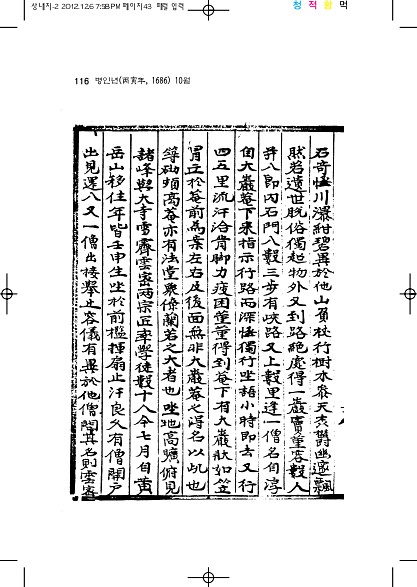 상내지-2 2012.12.6 7:58 PM 페이지43 제일 입력
청 적 황 먹
116 병인년(丙寅年, 1686) 10월
石奇怪川瀑紺碧異於他山負杖行樹木參天炎欝幽邃飄
然若遺世脫俗獨起物外又到路絶處得一巖竇童容數人
幷八卽內石門八數三步有岐路又上數里逢一僧名自淳
自大巖菴下來指示行路兩深怪獨行坐語小時卽去又行
四五里流汗沾背脚力疲困董董得到菴下有大巖狀如笠
冒立於菴前爲案左右及後面無非大巖菴之得名以此也
等砌頗高菴亦有法堂衆僚蘭若之大者也坐地高曠俯見
諸峰與大寺雪齋雲密兩宗正率學徒數十八今七月自黃
岳山移住年皆壬申生坐於前檻揮扇止汗良久有僧開戶
出見還八又一僧出接擧止容儀有異於他僧問其名則雲密